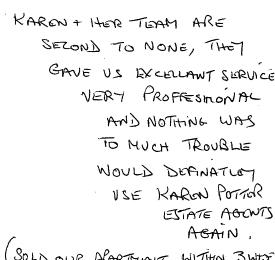 KAREN + HER TEAM ARE
SECOND TO NONE, THEY
GAVE US EXCELLANT SERVICE
VERY PROFFESIONAL
AND NOTHING WAS
TO MUCH TROUBLE
WOULD DEFINATLEY
USE KAREN POTTER
ESTATE AGENTS
AGAIN.
(SOLD OUR APARTMENT WITHIN 3